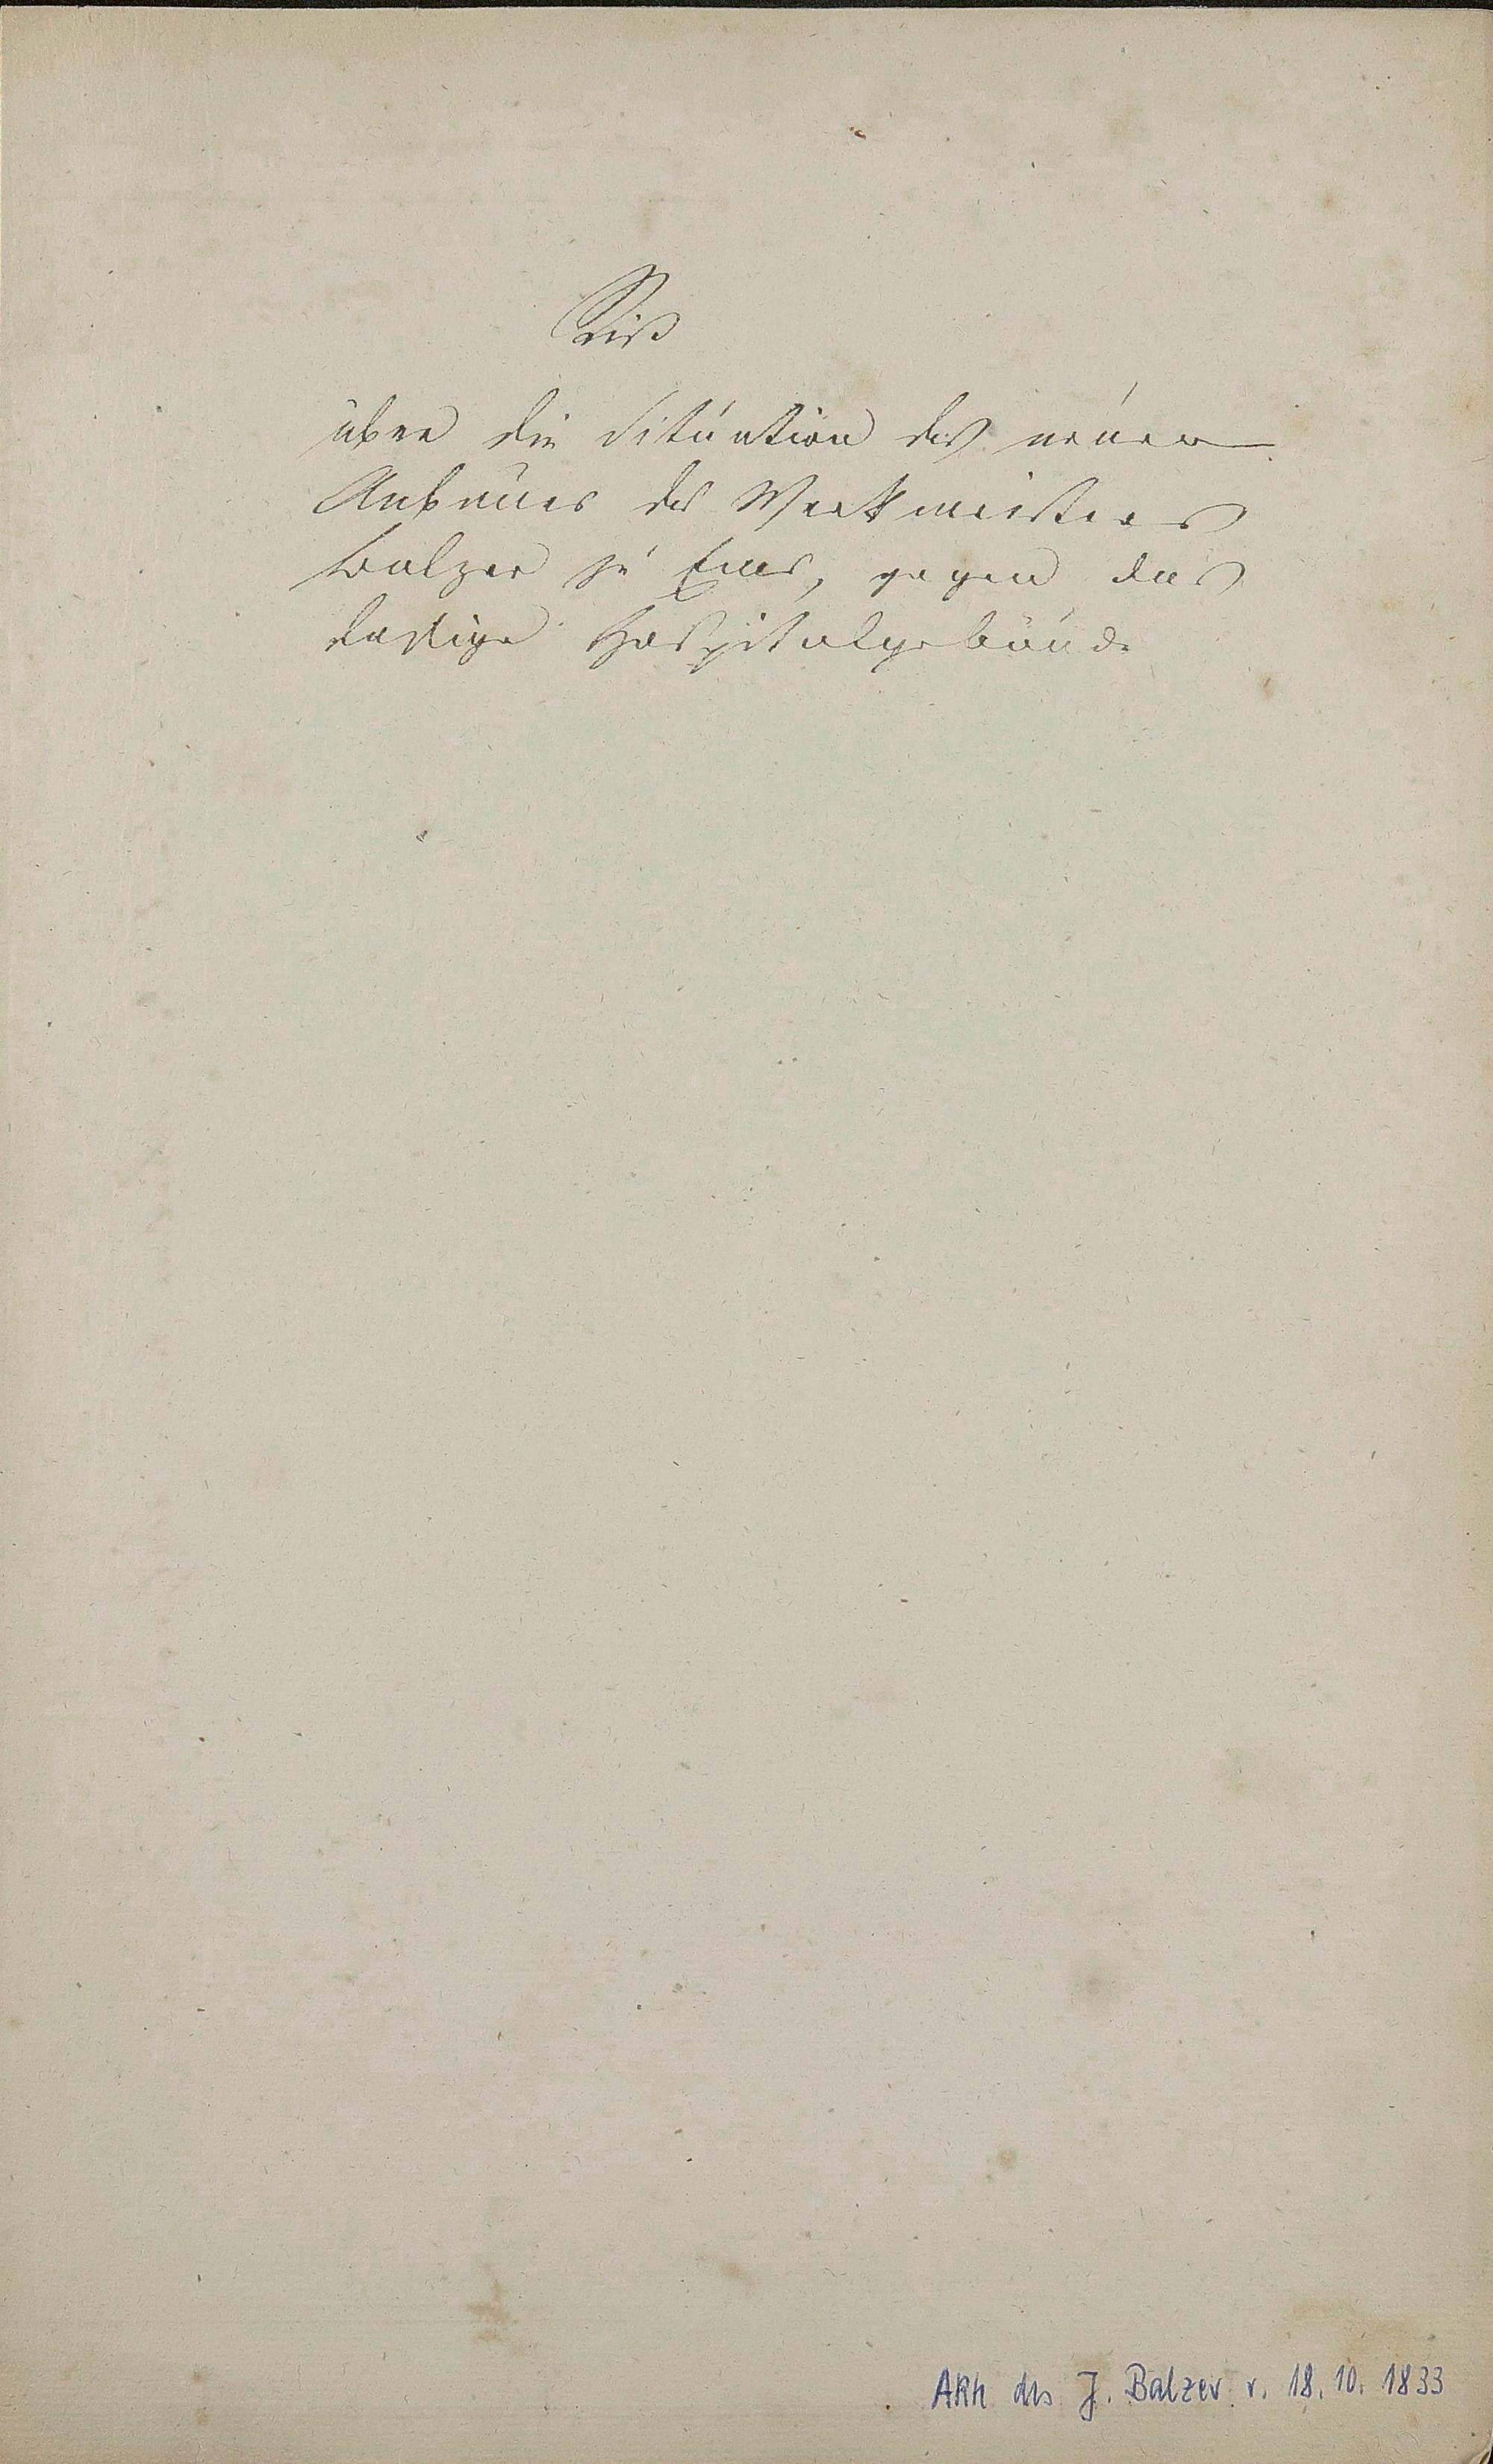 Riß
über die Situation des neuen
Anbaues des Werkmeisters
Balzer zu Ems, gegen das
dasige Hospitalgebäude
Akh des J. Balzer v. 18.10.1833